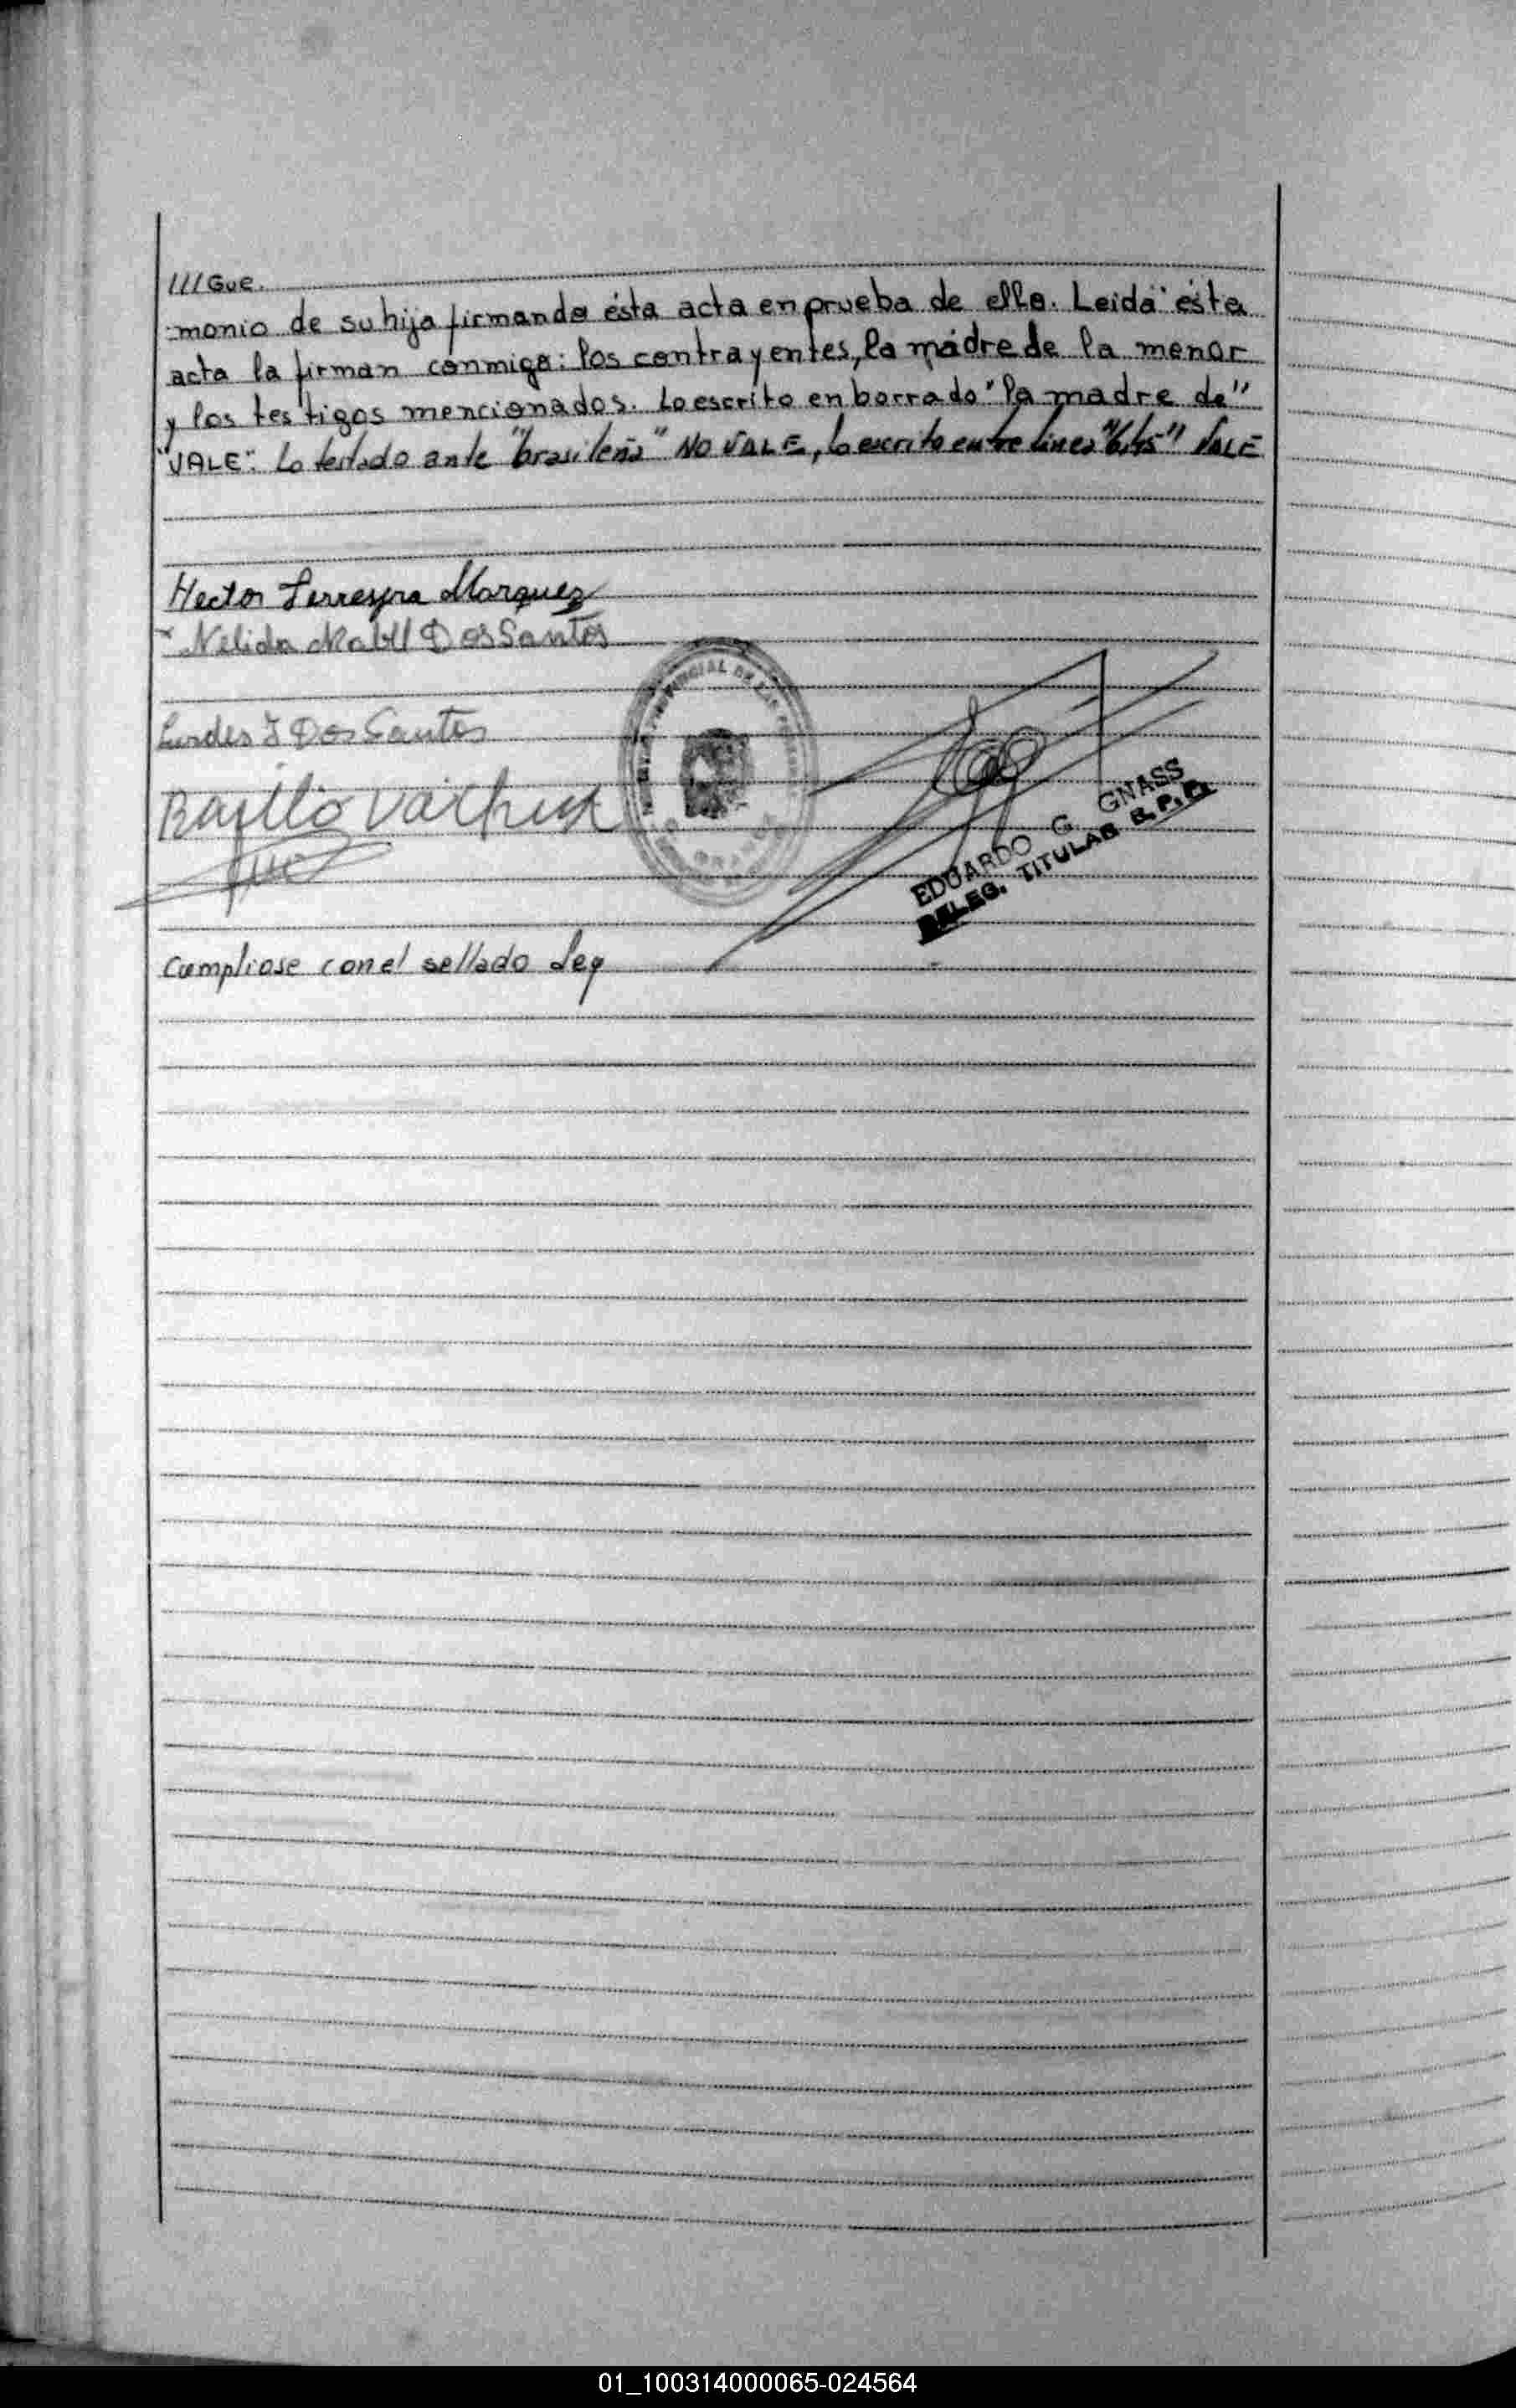 ///Gue.
monio de su hija firmando ésta acta en prueba de ello. Leida ésta
acta la firman conmigo: los contrayentes, la madre de la menor
y los testigos mencionados. Lo escrito en borrado "la madre de"
"VALE". Lo testado ante "brasileña" NO VALE, lo escrito entre linea VALE
Hector Ferreyra Marquez
Nelida Mabel Dos Santos
Lurdes Dos Santos
Basilio
EDUARDO G. GNASS
DELEG. TITULAR R.P.P.
Cumpliose con el sellado Ley
01_100314000065-024564